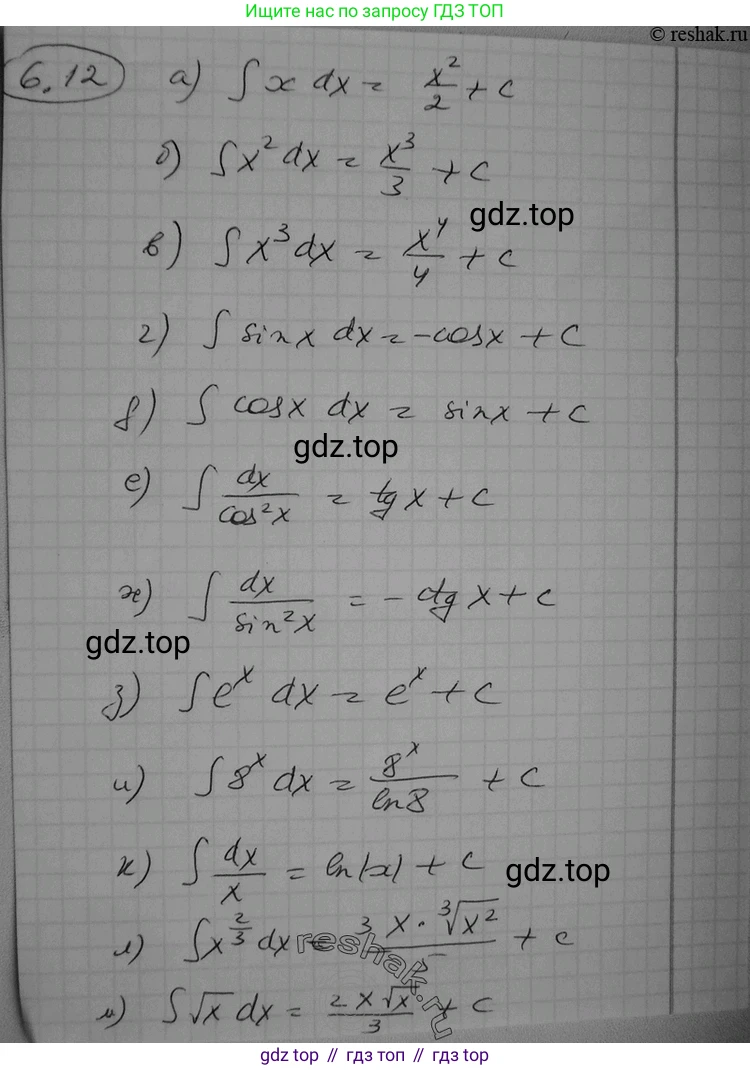 Ищите нас по запросу ГДЗ ТОП
© reshak.ru
6.12 а) ∫ x dx = x²/2 + c
б) ∫ x² dx = x³/3 + c
gdz.top
в) ∫ x³ dx = x⁴/4 + c
г) ∫ sin x dx = -cos x + c
д) ∫ cos x dx = sin x + c
gdz.top
е) ∫ dx/cos²x = tg x + c
ж) ∫ dx/sin²x = - ctg x + c
gdz.top
з) ∫ eˣ dx = eˣ + c
и) ∫ 8ˣ dx = 8ˣ/ln 8 + c
к) ∫ dx/x = ln|x| + c
gdz.top
л) ∫ x^(2/3) dx = 3 x · ∛x²/5 + c
reshak.ru
м) ∫ √x dx = 2x√x/3 + c
gdz.top // гдз топ // gdz.top